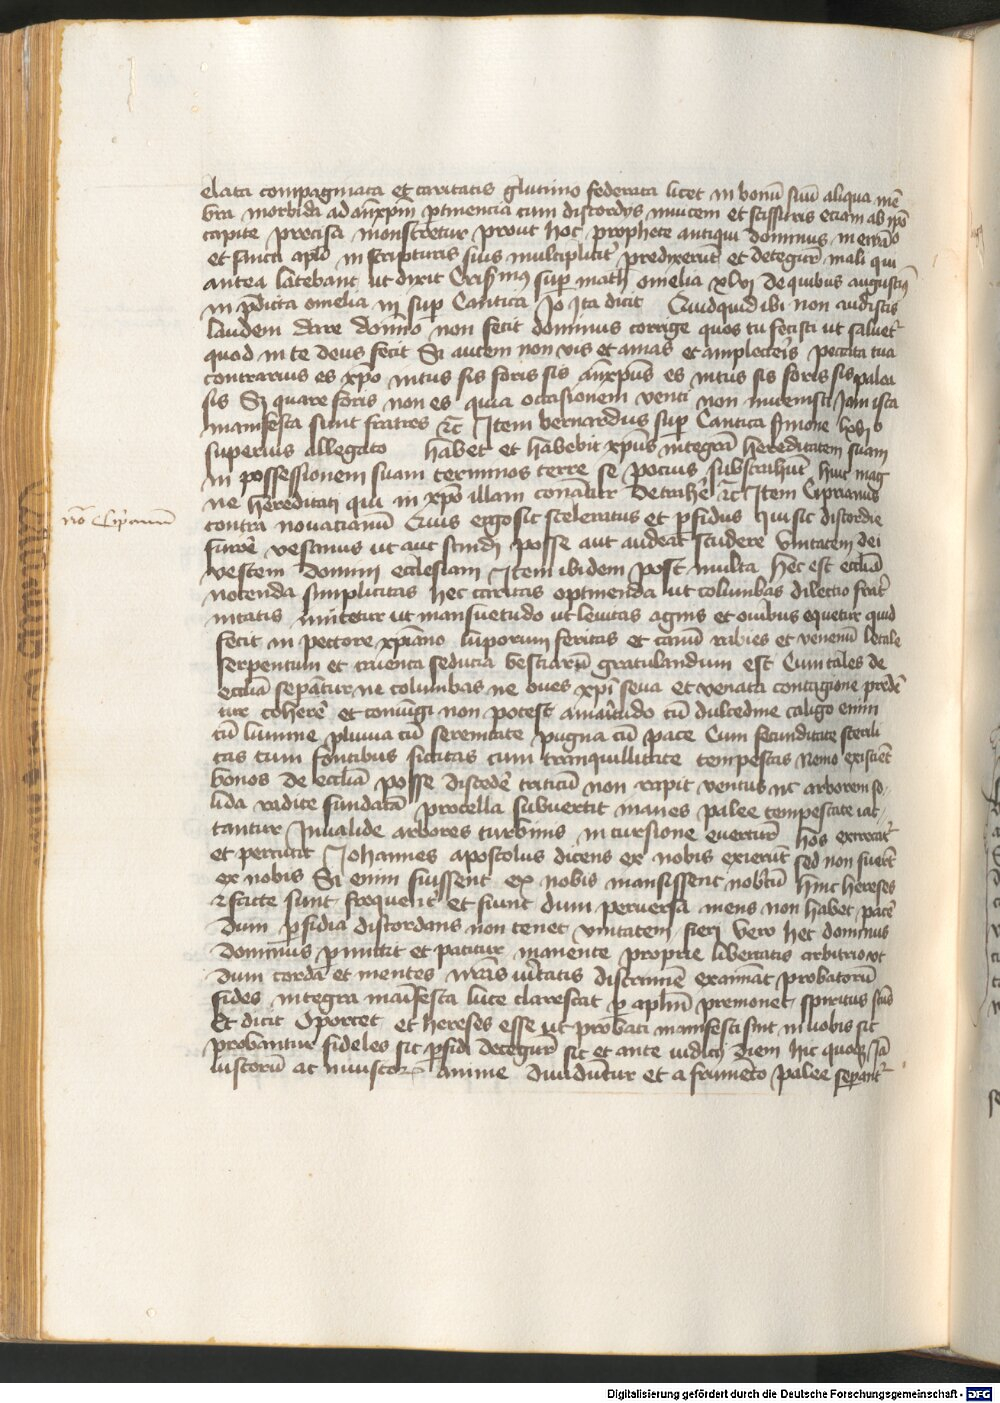 elata compaginata et caritatis glutino federata licet in bonū suū aliqua mē
bra morbida ad anxpm ptinencia cum discordijs inuicem et scissuris eciam ab ipō
capite precisa monstretur prout hoc prophete antiqui dominus
et sancti apli in scripturis suis multiplicit predixerūt et detegūt mali qui
antea latebant ut dixit Crisᵒmus sup math omelia xlvj De quibus augustiꝰ
in pdicta omelia iij sup Cantica Jo Ita dicit Quidquid ibi non audistis
laudem dare domino non fecit dominus corrige quos tu fecisti ut saluet
quod in te deus fecit Si autem non vis et amas et amplecteris peccata tua
contrarius es xpo intus sis foris sis anxpus es intus sis foris sis palea
sis Sz quare foris non es quia occasionem venti non inuenisti Jam ista
manifesta sunt fratres ⁊c̄ Item bernardus sup Cantica smone lxv
superius allegato habet et habebit xpus integrā hereditatem suam
in possessionem suam terminos terre se pocius substrahūt huic mag
ne hereditati qui in xpo illam conātur detrahē ⁊c̄ Item Ciprianus
nō Ciprianum
contra nouacianū Quis ergo sic sceleratus et pfidus qui sic discordie
furorē vesanus ut aut scindi posse aut audeat scindere vnitatem dei
vestem domini ecclesiam Item ibidem post multa hec est eccliā
noscenda simplicitas hec caritas optinenda ut columbas dilectio frat
nitatis imitetur ut mansuetudo ut lenitas agnis et ouibus equetur quid
fecit in pectore xpiano luporum feritas et canū rabies et venenū letale
serpentum et cruenta seuicia bestiarū gratulandum est Cum tales de
eccliā sepātur ne columbas ne oues xpi seua et venata contagione predē
tur coherē et coniūgi non potest amaritudo cū dulcedine caligo enim
cū lumine pluuia cū serenitate pugna cū pace Cum fecunditate sterili
tas cum fontibus siccitas cum tranquillitate tempestas Nemo existiēt
bonos de eccliā posse discedē triticū non rapit ventus nc arborem so
lida radice fundatā procella subuertit inanes palee tempestate iac
tantur Inualide arbores turbinis incursione euertūt hos execrat
et percutit Johannes apostolus dicens ex nobis exierūt sed non fuerūt
ex nobis Si enim fuissent ex nobis mansissent nobcū hinc hereses
⁊ facte sunt frequent et fiunt dum peruersa mens non habet pacē
dum pfidia discordans non tenet vnitatem fieri vero hec dominus
dominus pmittit et patitur manente proprie libertatis arbitrio vt
dum corda et mentes nrās vitatis discrimē examinat probatorū
fides integra manifesta luce clarescat p aplm premonet spiritus scūs
Et dicit Oportet et hereses esse ut probati manifesti sint in uobis sic
probantur fideles sic pfidi deteguntur sic et ante iudicij diem hic quoqꝫ Jā
iustorū ac iniustorꝫ anime diuiduntur et a frumēto palee sepant